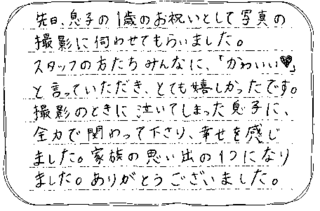 先日、息子の1歳のお祝いとして写真の
撮影に伺わせてもらいました。
スタッフの方たちみんなに、「かわいい♥」
と言っていただき、とても嬉しかったです。
撮影のときに泣いてしまった息子に、
全力で関わって下さり、幸せを感じ
ました。家族の思い出の1つになり
ました。ありがとうございました。